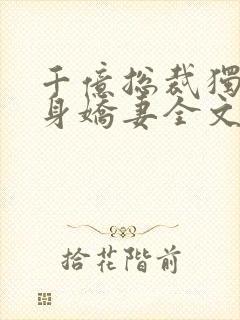 千億總裁獨
身嬌妻全文
拾花階前